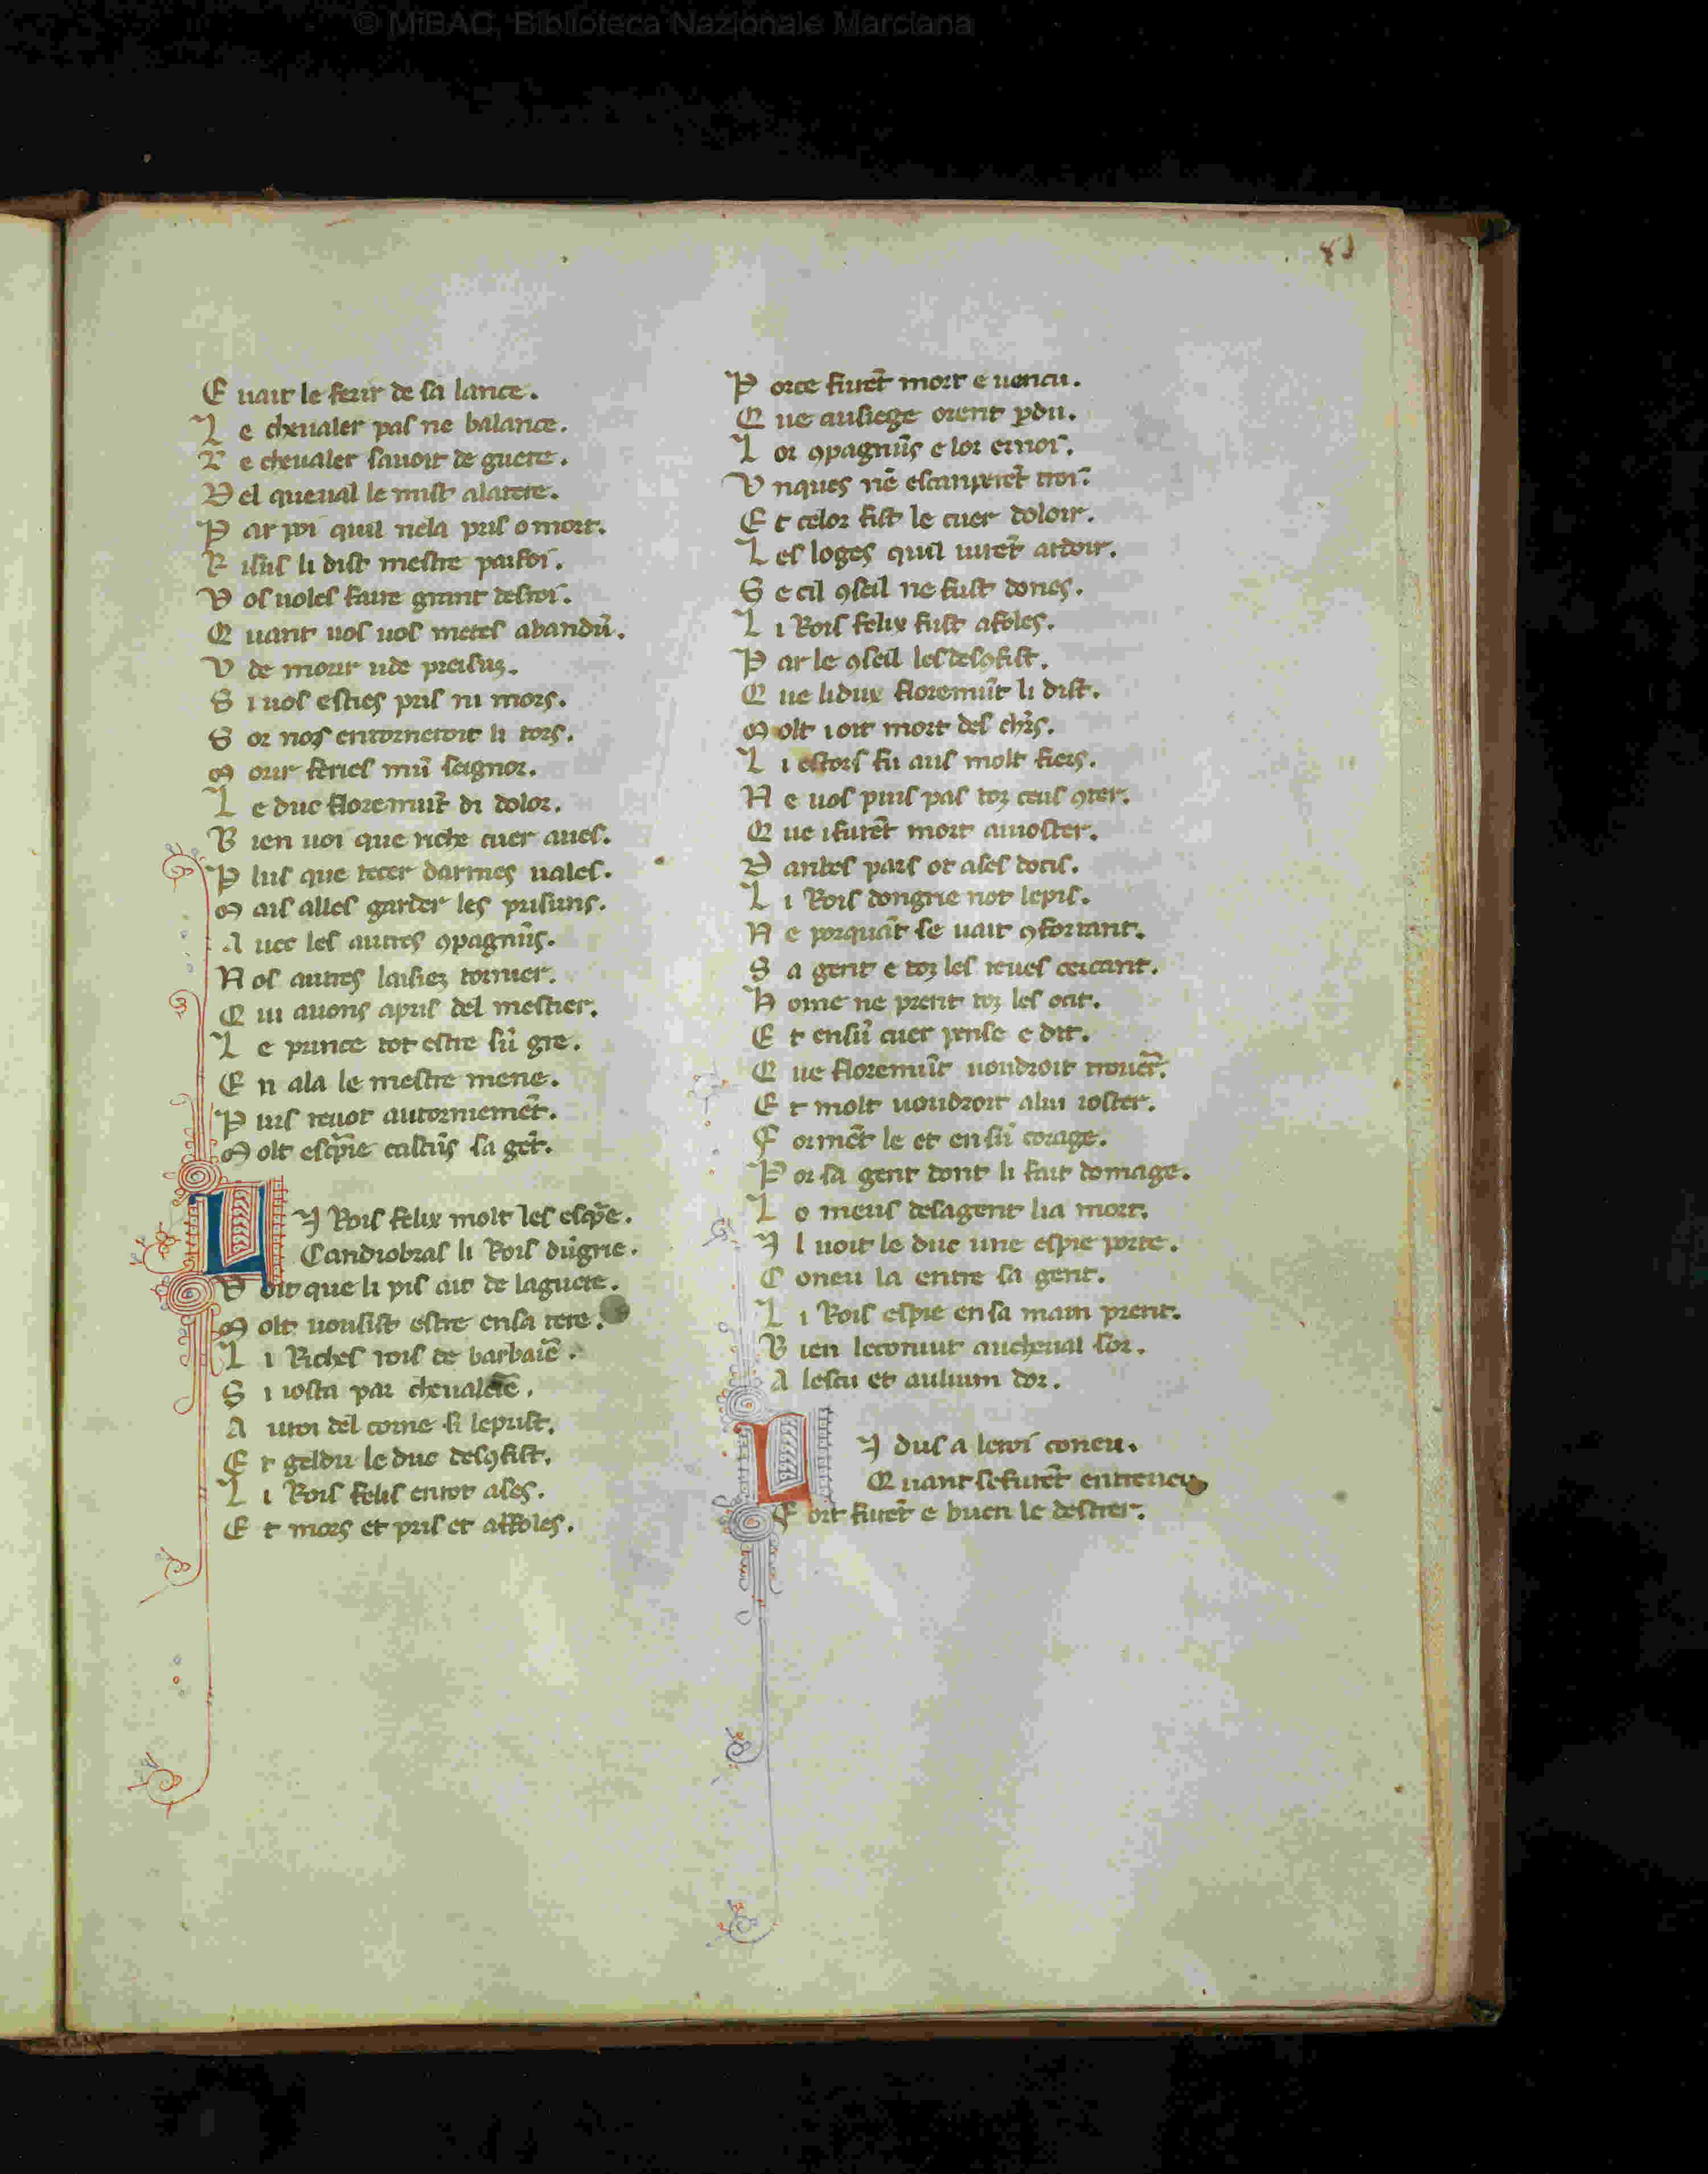 © MiBAC, Biblioteca Nazionale Marciana
E uait le ferir de sa lance.
L e cheualer pas ne balance.
L e cheualer sauoit de guere.
D el queual le mist alatere.
P ar poi quil nela pris o mort.
R isus li dist mestre parfoi.
V os uoles faire grant desroi.
Q uant uos uos metes abandũ.
V de morir
S i uos esties pris ni mors.
S or nos entorneroit li tors.
M our feries mũ seignor.
L e duc floremũt di dolor.
B ien uoi que riche cuer aues.
P lus que tecer darmes uales.
M ais alles garder les prisuns.
A uec les autres ꝯpagnũs.
N os autres laisiez tornier.
Q ui auons apris del mestier.
L e prince tot estre sũ gre.
E n ala le mestre mene.
P uis reuot autorniemẽt.
M olt sa gẽt.
L I Rois felix molt les
Candiobras li Rois dũgrie.
V oit que li pis au de laguere.
M olt uousist estre ensa tere.
L i Riches rois de barbaiẽ.
S i iosta par cheualeiẽ.
A uroi del corne si leprist.
E t geldu le duc desꝯfist.
L i Rois felis entot ases.
E t mors et pris et affoles.
P orce furẽt mort e uencu.
Q ue ausiege orent ꝑdu.
L or ꝯpagnũs e lor
V nques nẽ
E t celor fist le cuer doloir.
L es loges quil uirẽt ardoir.
S e cil ꝯseil ne fust dones.
L i Rois felix fust afoles.
P ar le ꝯseil lesdesꝯfist.
Q ue lidux floremũt li dist.
M olt ioit mort des chr̃s.
L i estors fu aus molt fiers.
N e uos puis pas toz ceus ꝯter.
Q ue ifurẽt mort auioster.
D anbes pars ot ases dotis.
L i Rois dongrie not lepis.
N e porquãt se uait ꝯfortant.
S a gent e toz les reues cercant.
H ome ne prent toz les ocit.
E t ensũ cuer pense e dit.
Q ue floremũt uoudroit trouer̃.
E t molt uoudroit alui ioster.
F ormẽt le et en sũ corage.
P or sa gent dont li fait domage.
L o meus desagent lia mort.
I l uoit le duc une espie porte.
C oneu la entre sa gent.
L i Rois espie en sa main prent.
B ien leconuit aucheual sor.
A lescu et aulium dor.
L I dus a leroi coneu.
Q uant sefurẽt entreueu
F ort furẽt e buen le destrer.